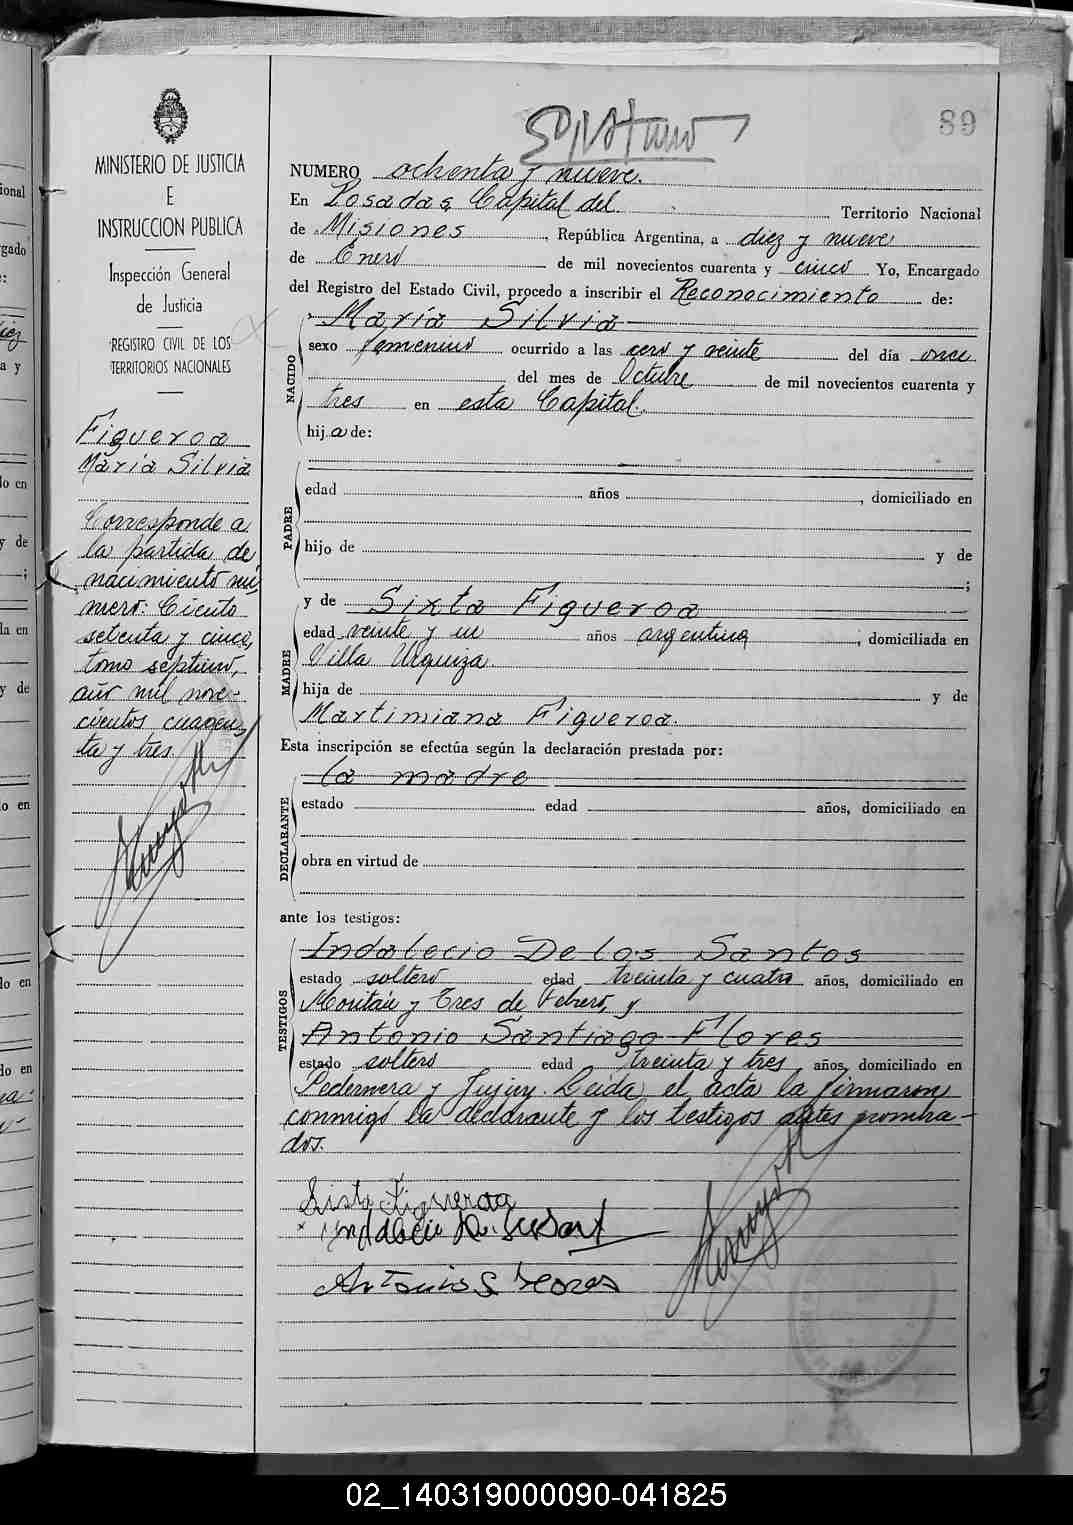 89
MINISTERIO DE JUSTICIA
E
INSTRUCCION PUBLICA
Inspección General
de Justicia
REGISTRO CIVIL DE LOS
TERRITORIOS NACIONALES
Figueroa
María Silvia
Corresponde a
la partida de
nacimiento nú
mero: Ciento
setenta y cinco,
tomo septimo,
año mil nove-
cientos cuaren
ta y tres.
NUMERO ochenta y nueve.
En Posadas, Capital del Territorio Nacional
de Misiones, República Argentina, a diez y nueve
de Enero de mil novecientos cuarenta y cinco Yo, Encargado
del Registro del Estado Civil, procedo a inscribir el Reconocimiento de:
NACIDO
María Silvia
sexo femenino ocurrido a las cero y veinte del día once
del mes de Octubre de mil novecientos cuarenta y
tres en esta Capital.
hija de:
PADRE
edad años, domiciliado en
hijo de y de
;
MADRE
y de Sixta Figueroa
edad veinte y un años argentina, domiciliada en
Villa Urquiza.
hija de y de
Martimiana Figueroa.
Esta inscripción se efectúa según la declaración prestada por:
DECLARANTE
la madre
estado edad años, domiciliado en
obra en virtud de
ante los testigos:
TESTIGOS
Indalecio De los Santos
estado soltero edad treinta y cuatro años, domiciliado en
y Tres de Febrero, y
Antonio Santiago Flores
estado soltero edad treinta y tres años, domiciliado en
Pedernera y Jujuy. Leida el acta la firmaron
conmigo la declarante y los testigos antes nombra-
dos.
Sixta Figueroa
Antonio S Flores
02_140319000090-041825